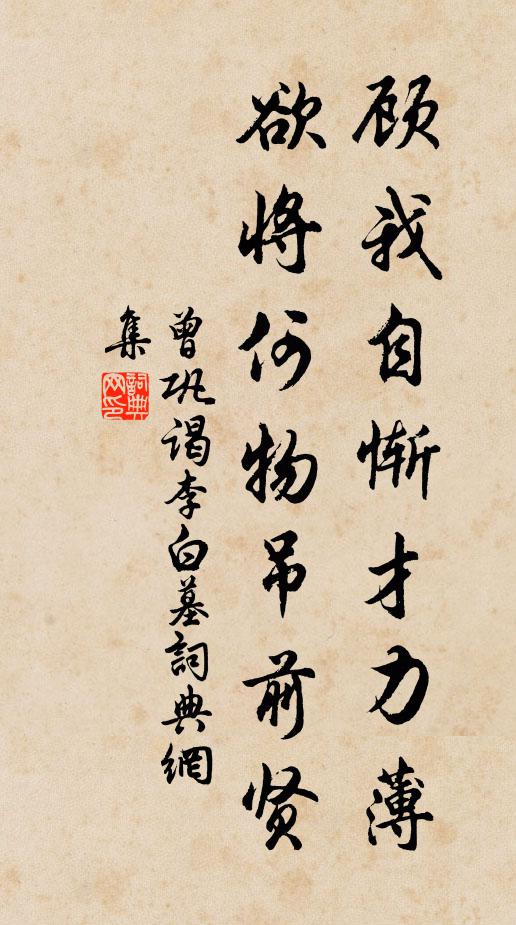 顾我自惭才力薄
欲将何物吊前贤
曾巩谒李白墓詞典網
集
詞典
网印